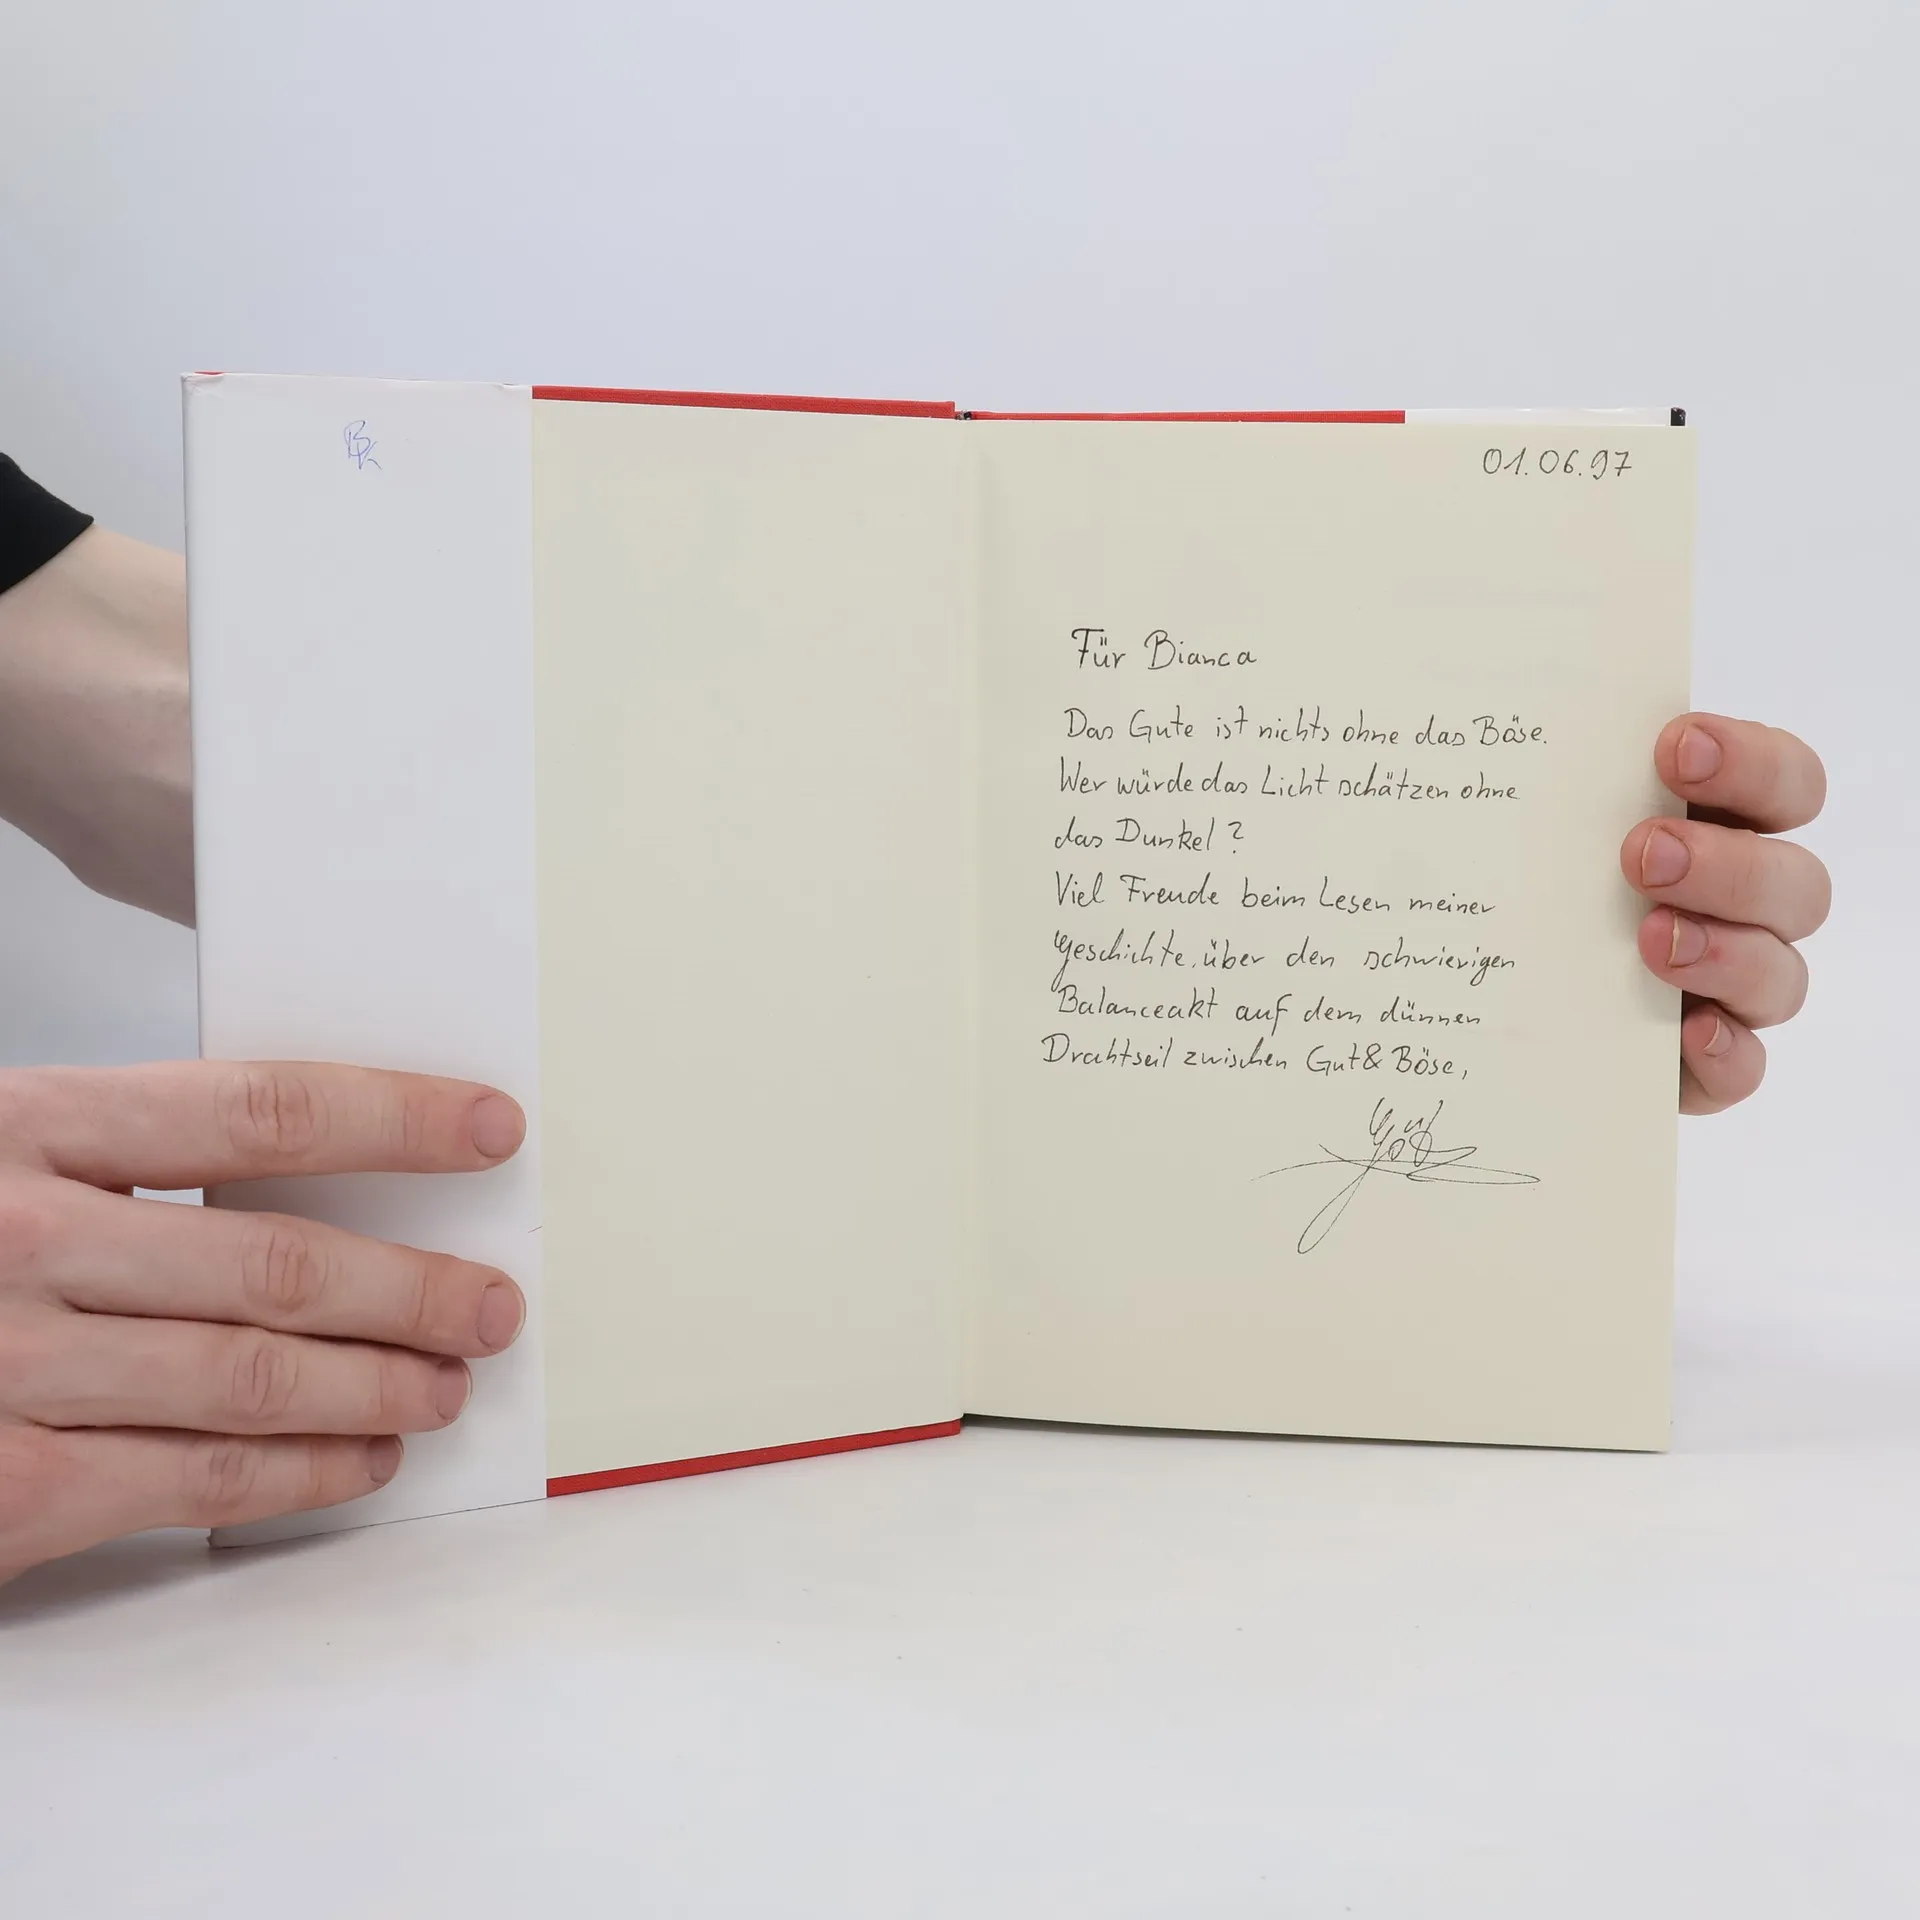 BK
01.06.97
Für Bianca
Das Gute ist nichts ohne das Böse.
Wer würde das Licht schätzen ohne
das Dunkel?
Viel Freude beim Lesen meiner
Geschichte, über den schwierigen
Balanceakt auf dem dünnen
Drahtseil zwischen Gut & Böse,
Götz